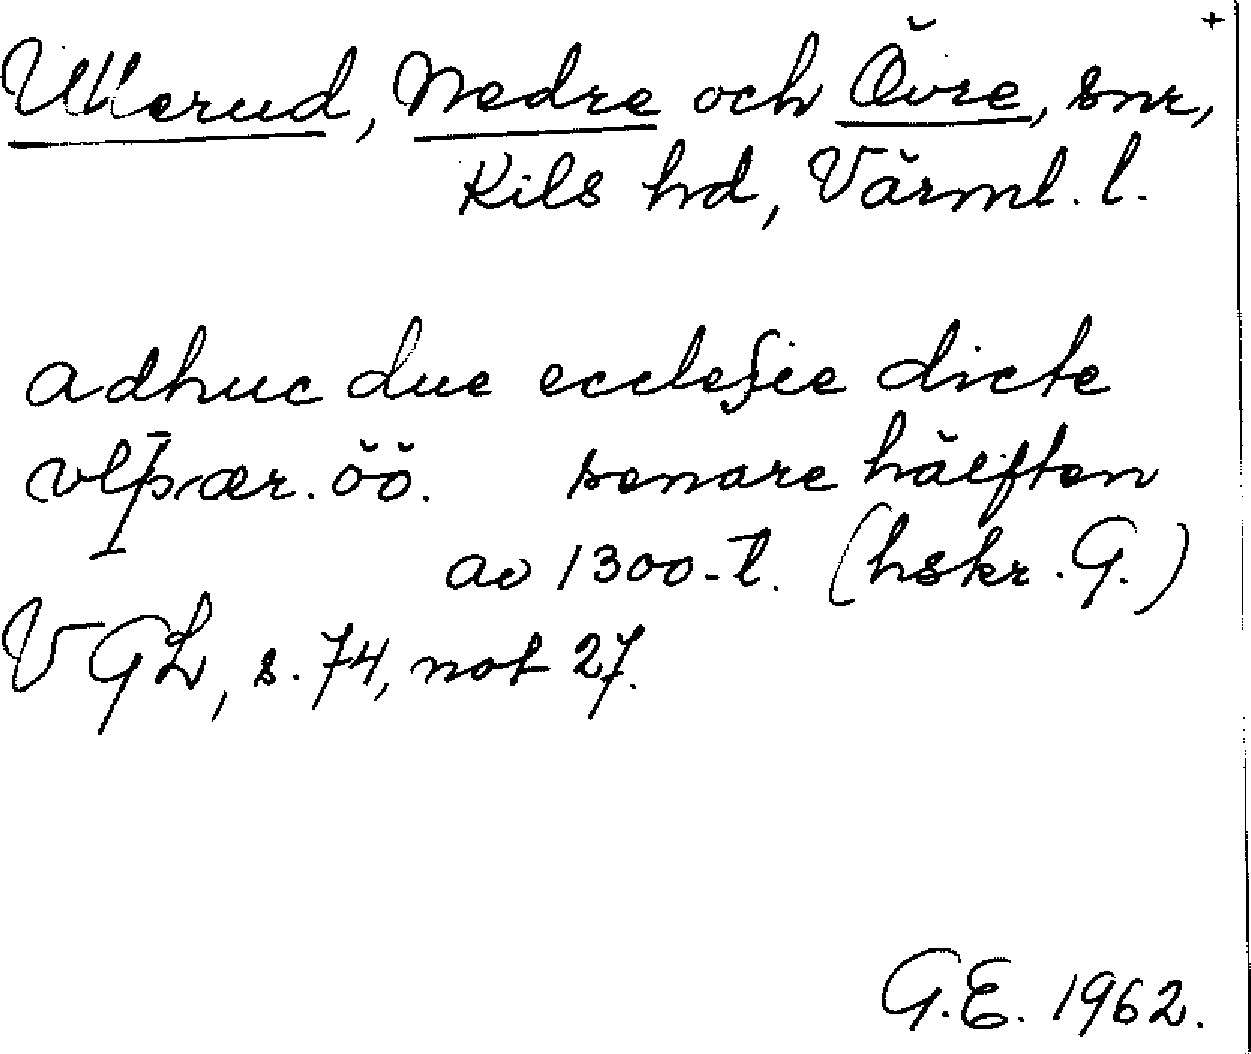 +
Ullerud, Nedre och Övre, snr,
Kils hd, Värml. l.
adhuc due ecclesie dicte
öö. senare hälften
av 1300-t. (hskr. G.)
VGL, s. 74, not 27.
G.E. 1962.